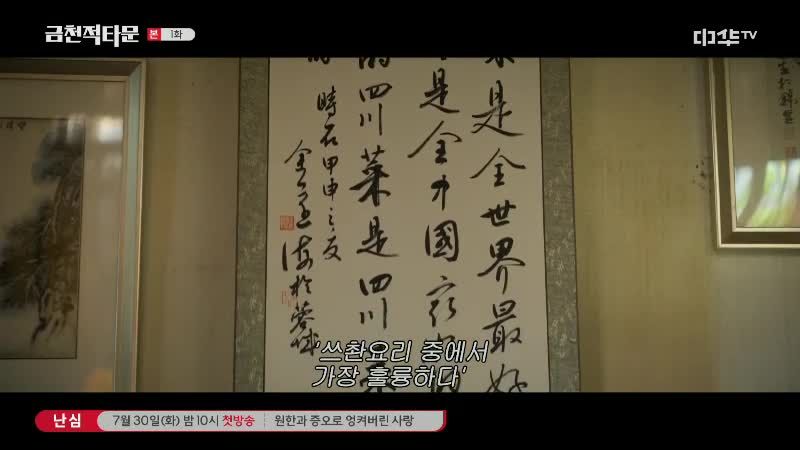 금천적타문 본 1화
中华TV
是全世界最好
是全中國最
四川菜是四川
時在甲申之夏
於蓉城
'쓰촨요리 중에서
가장 훌륭하다'
난심 7월 30일(화) 밤 10시 첫방송 원한과 증오로 엉켜버린 사랑